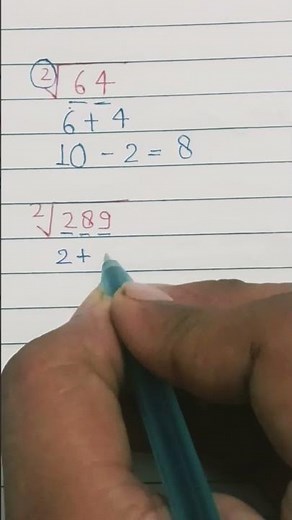 ²√64
6 + 4
10 - 2 = 8
²√289
2 +